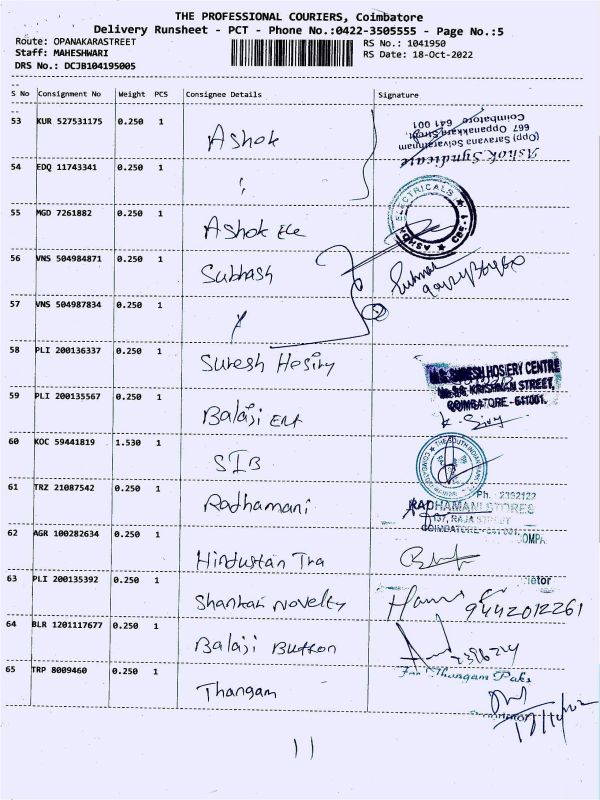 THE PROFESSIONAL COURIERS, Coimbatore
Delivery Runsheet - PCT - Phone No.:0422-3505555 - Page No.:5
Route: OPANAKARASTREET RS No.: 1041950
Staff: MAHESHWARI RS Date: 18-Oct-2022
DRS No.: DCJB104195005
S No Consignment No Weight PCS Consignee Details Signature
53 KUR 527531175 0.250 1 Ashok
Ashok Syndicate
(Opp) Saravana Selvarathnam
667 Oppanakkara Street,
Coimbatore 641 001
54 EDQ 11743341 0.250 1
ELECTRICALS ASHOK CBE-1
55 MGD 7261882 0.250 1 Ashok Ele
56 VNS 504984871 0.250 1 Subhash
57 VNS 504987834 0.250 1
58 PLI 200136337 0.250 1 Suresh Hosiry
SURESH HOSIERY CENTRE
KRISHNAN STREET,
COIMBATORE - 641001.
59 PLI 200135567 0.250 1 Balaji Ent
60 KOC 59441819 1.530 1 SIB
THE SOUTH INDIAN
61 TRZ 21087542 0.250 1 Radhamani
Ph. : 2392122
RADHAMANI STORES
137, RAJA STREET
COIMBATORE - 641 001.
62 AGR 100282634 0.250 1 Hindustan Tra
COMPA
63 PLI 200135392 0.250 1 Shankar Novelty
ietor
9442012261
64 BLR 1201117677 0.250 1 Balaji Button
For Thangam Paks
65 TRP 8009460 0.250 1 Thangam
11